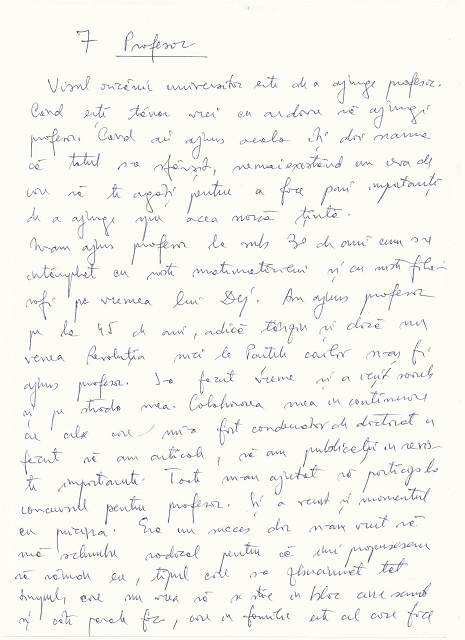 7 Profesor
Visul oricărui universitar este de a ajunge profesor.
Când ești tânăr vrei cu ardoare să ajungi
profesor. Când ai ajuns acolo îți dai seama
că totul s-a sfârșit, nemaiexistând un ceva de
care să te agăți pentru a face pași importanți
de a ajunge spre acea nouă țintă.
N-am ajuns profesor la sub 30 de ani cum s-a
întâmplat cu niște matematicieni și cu niște filo-
sofi pe vremea lui Dej. Am ajuns profesor
pe la 45 de ani, adică târziu și dacă nu
venea Revoluția nici la Paștile cailor n-aș fi
ajuns profesor. S-a făcut vreme și a ieșit soarele
și pe strada mea. Colaborarea mea în continuare
cu cele care mi-a fost conducător de doctorat a
făcut să am articole, să am publicații în revis-
te importante. Toate m-au ajutat să particip la
concursul pentru profesor. Și a venit și momentul
cu pricina. Era un succes dar n-am vrut să
mă schimbe radical pentru că îmi propusesem
să rămân eu, tipul care s-a frământat tot
timpul, care nu vrea să se știe în bloc cine sunt
și câte parale fac, care în familie este cel care face